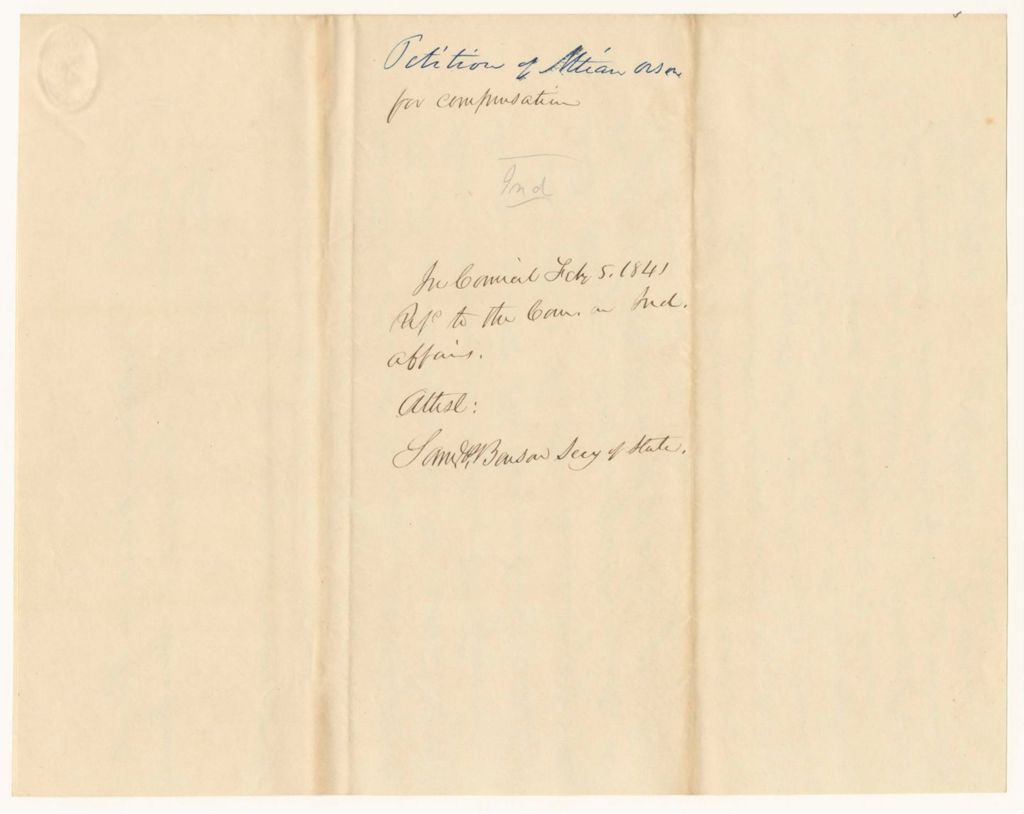 Petition of Attian Orson
for compensation
Ind
In Council Feby 5. 1841
Refd to the Com. on Ind.
affairs.
Attest:
Saml P. Benson Secy of State.